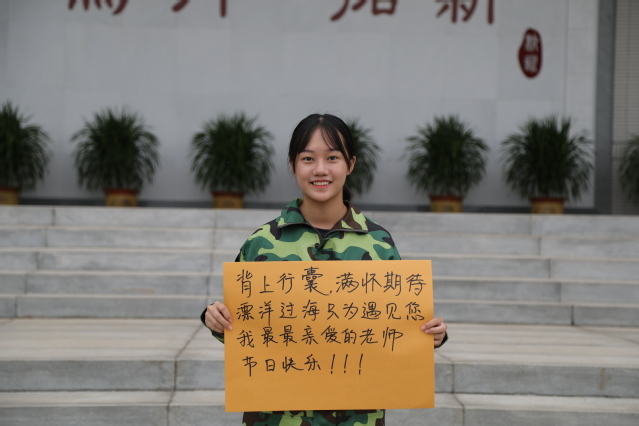 背上行囊,满怀期待
漂洋过海只为遇见您
我最最亲爱的老师
节日快乐!!!